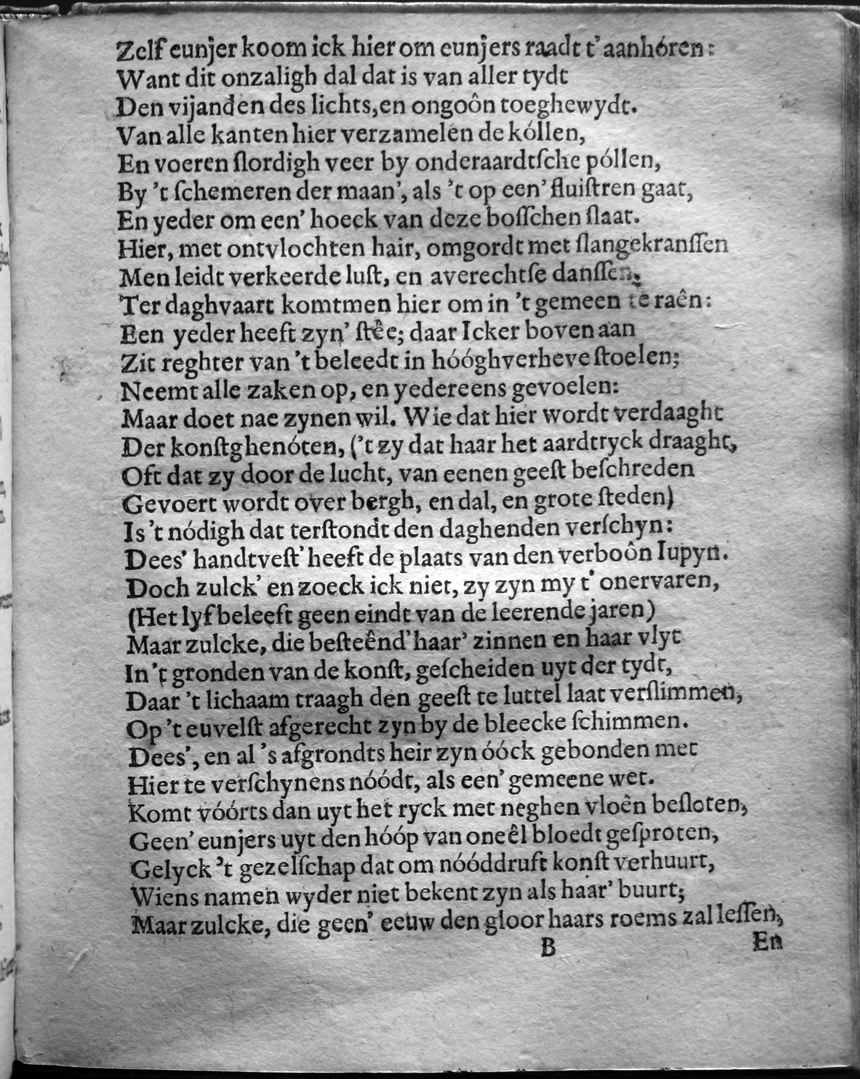 Zelf eunjer koom ick hier om eunjers raadt t' aanhóren:
Want dit onzaligh dal dat is van aller tydt
Den vijanden des lichts, en ongoôn toeghewydt.
Van alle kanten hier verzamelen de kóllen,
En voeren slordigh veer by onderaardtſche póllen,
By 't ſchemeren der maan', als 't op een' fluiſtren gaat,
En yeder om een' hoeck van deze boſſchen ſlaat.
Hier, met ontvlochten hair, omgordt met ſlangekranſſen
Men leidt verkeerde luſt, en averechtſe danſſen.
Ter daghvaart komtmen hier om in 't gemeen te raên:
Een yeder heeft zyn' ſtêe; daar Icker boven aan
Zit reghter van 't beleedt in hóóghverheve ſtoelen;
Neemt alle zaken op, en yedereens gevoelen:
Maar doet nae zynen wil. Wie dat hier wordt verdaaght
Der konſtghenóten, ('t zy dat haar het aardtryck draaght,
Oft dat zy door de lucht, van eenen geeſt beſchreden
Gevoert wordt over bergh, en dal, en grote ſteden)
Is 't nódigh dat terſtondt den daghenden verſchyn:
Dees' handtveſt' heeft de plaats van den verboôn Iupyn.
Doch zulck' en zoeck ick niet, zy zyn my t' onervaren,
(Het lyf beleeft geen eindt van de leerende jaren)
Maar zulcke, die beſteênd' haar' zinnen en haar vlyt
In 't gronden van de konſt, geſcheiden uyt der tydt,
Daar 't lichaam traagh den geeſt te luttel laat verſlimmen,
Op 't euvelſt afgerecht zyn by de bleecke ſchimmen.
Dees', en al 's afgrondts heir zyn óóck gebonden met
Hier te verſchynens nóódt, als een' gemeene wet.
Komt vóórts dan uyt het ryck met neghen vloên beſloten,
Geen' eunjers uyt den hóóp van oneêl bloedt geſproten,
Gelyck 't gezelſchap dat om nóóddruft konſt verhuurt,
Wiens namen wyder niet bekent zyn als haar' buurt;
Maar zulcke, die geen' eeuw den gloor haars roems zal leſſen,
B En